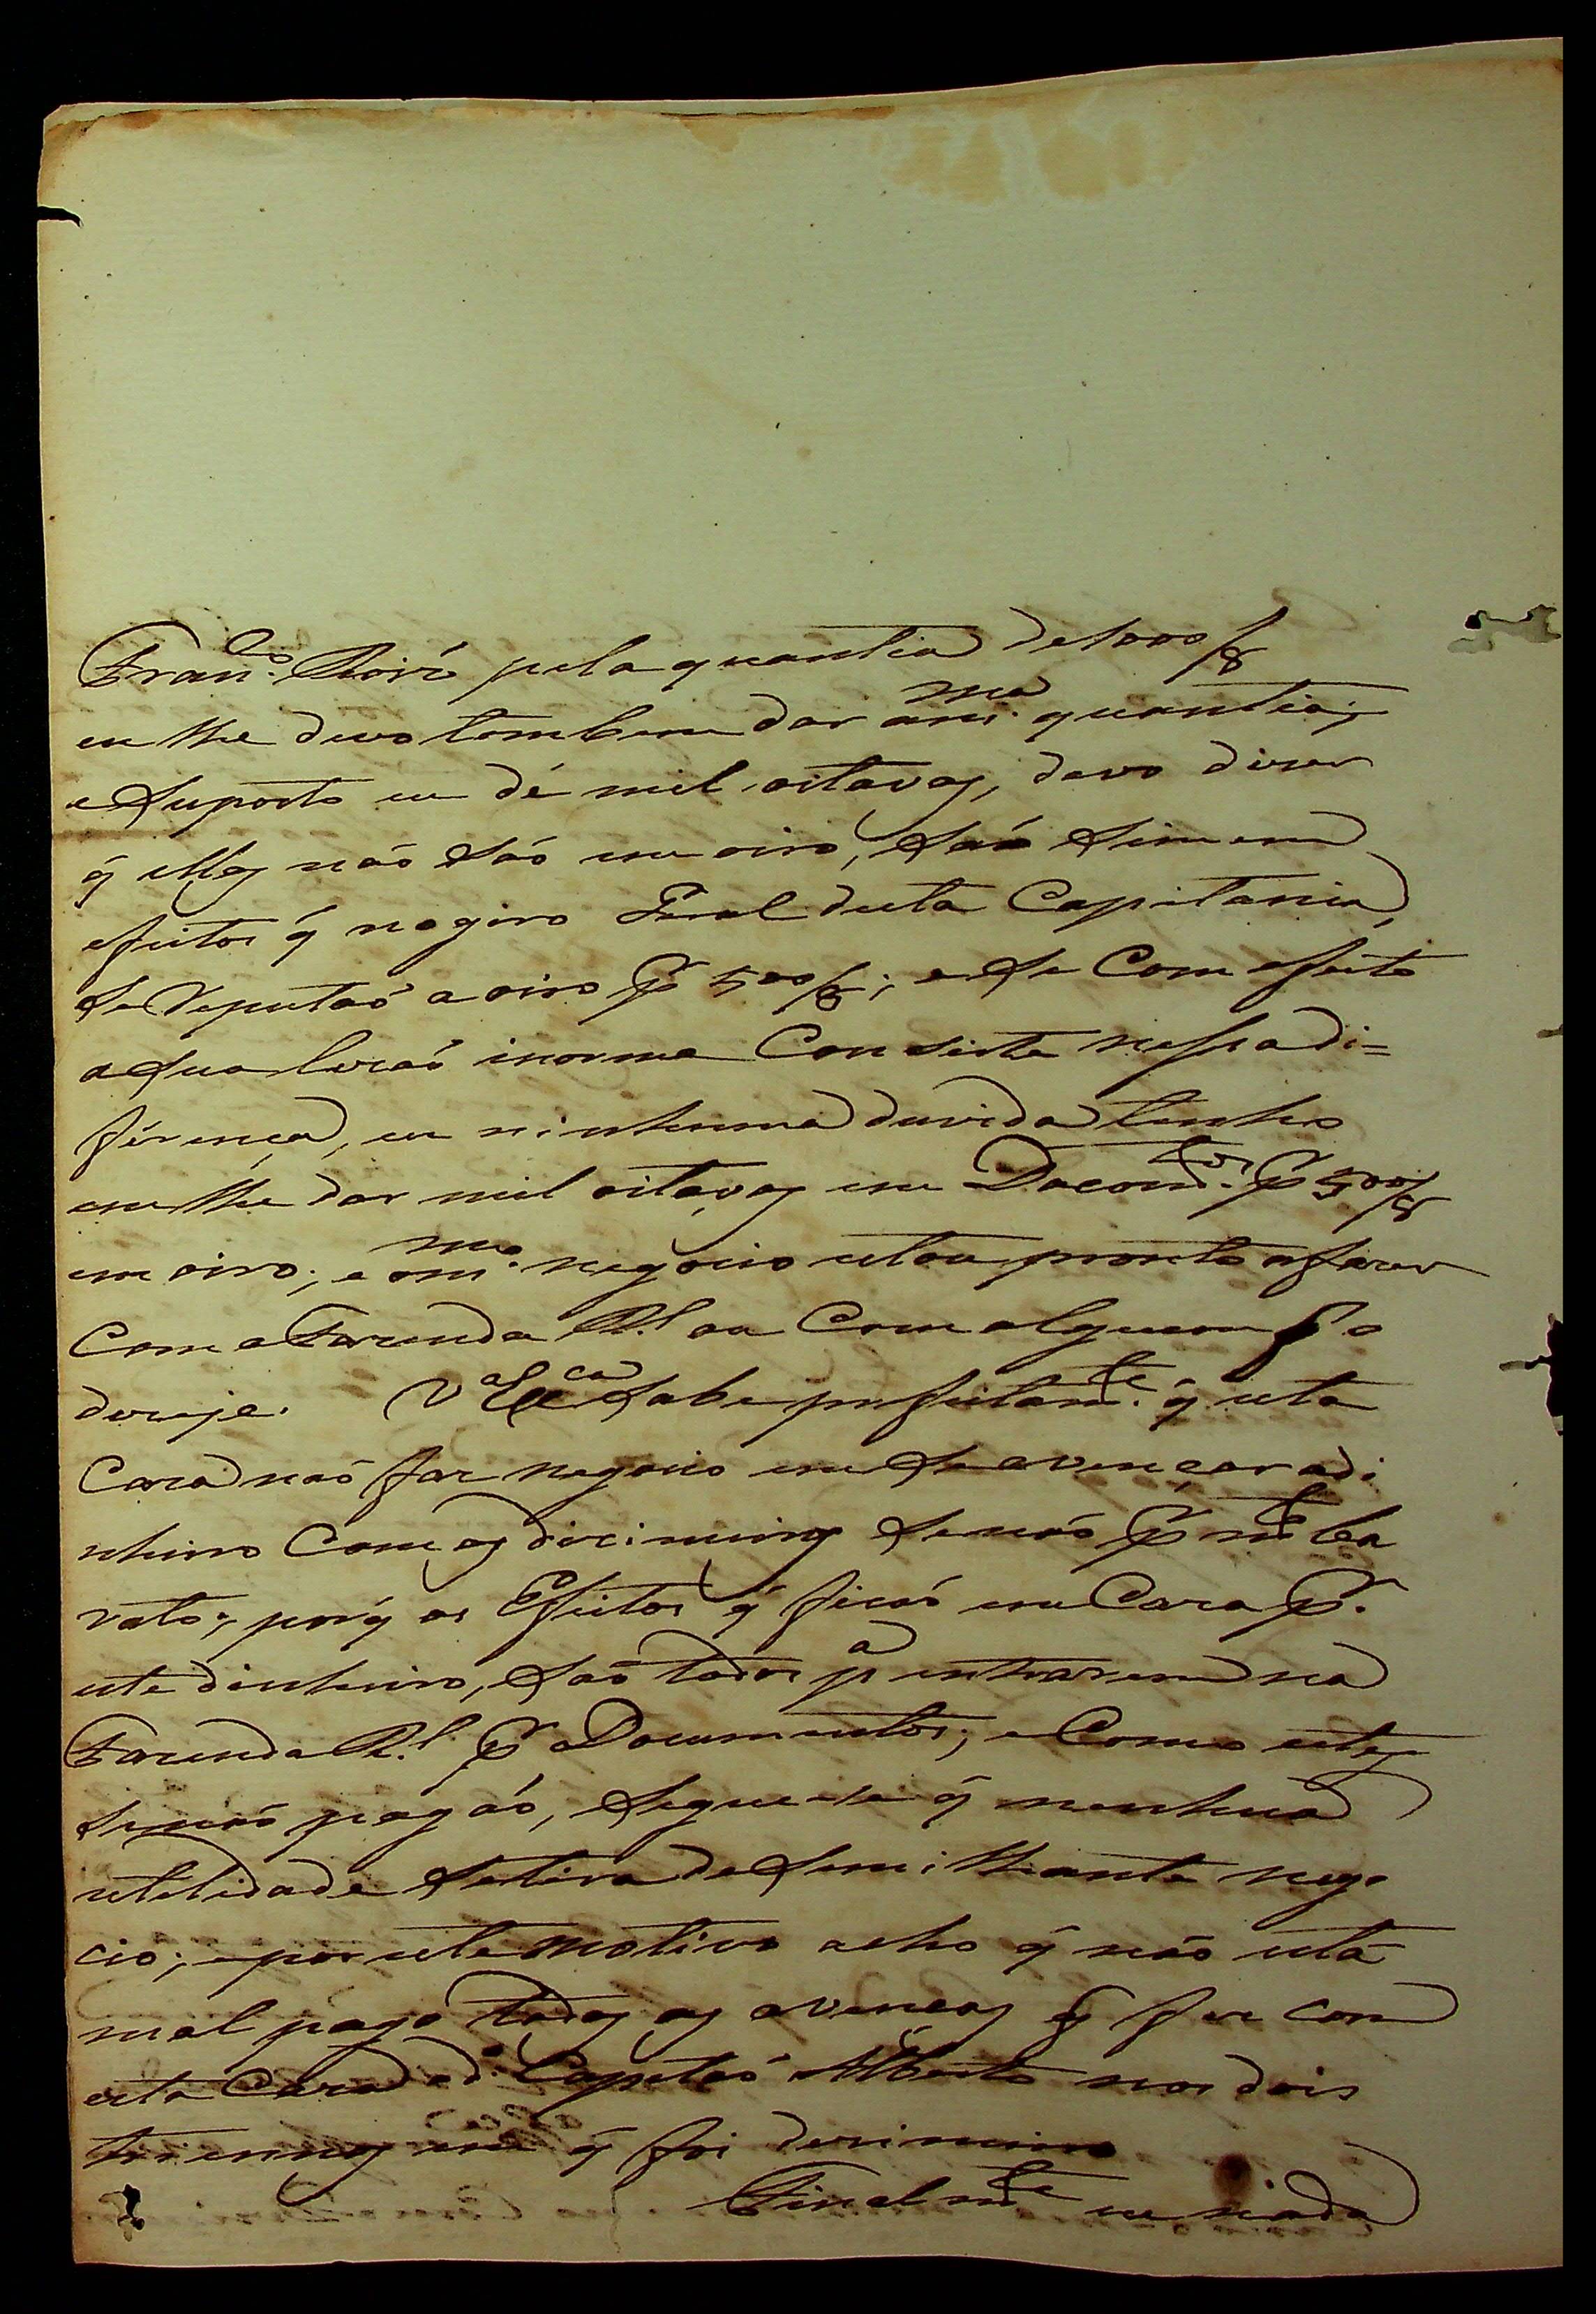 Fran.co pela quantia de 1000/8
eu lhe devo tombem dar am.ma quantia;
e Suposto eu dé mil oitavas, devo dizer
q̃ ellas não São em oiro, São Sim em
efeitos q̃ no giro Geral desta Capitania,
Se Reputaõ a oiro P.r 500/8; e Se Com efeito
a Sua lezaõ inorme Consiste nessa di=
ferença, eu ninhuma duvida tenho
em lhe dar mil oitavas em Docom.tos P.r 500/8
em oiro; e om.mo negocio estou pronto afazer
Com a Fazenda R.l ou Com alguem q̃ o
dezeje. V.a Ex.ca Sabe perfeitam.te q̃ esta
Caza naõ faz negocio em Se avençar a di
nheiro Com os dizimeiros Senaõ P.r m.to ba
rato; porq̃ os Efeitos q̃ ficaõ em Caza P.r
este dinheiro, Saõ todos p.a entrarem na
Fazenda R.l P.r Documentos; e Como estes
Se naõ pagaõ, Segue-se q̃ nenhua
utilidade Se tira de Semilhante nego
cio; e por este motivo acho q̃ não está
mal pago todas as avenças q̃ fez com
esta Caza o d.o Capitaõ Alberto nos dois
triennos em q̃ foi dezimeiro
Finalm.te eu nada